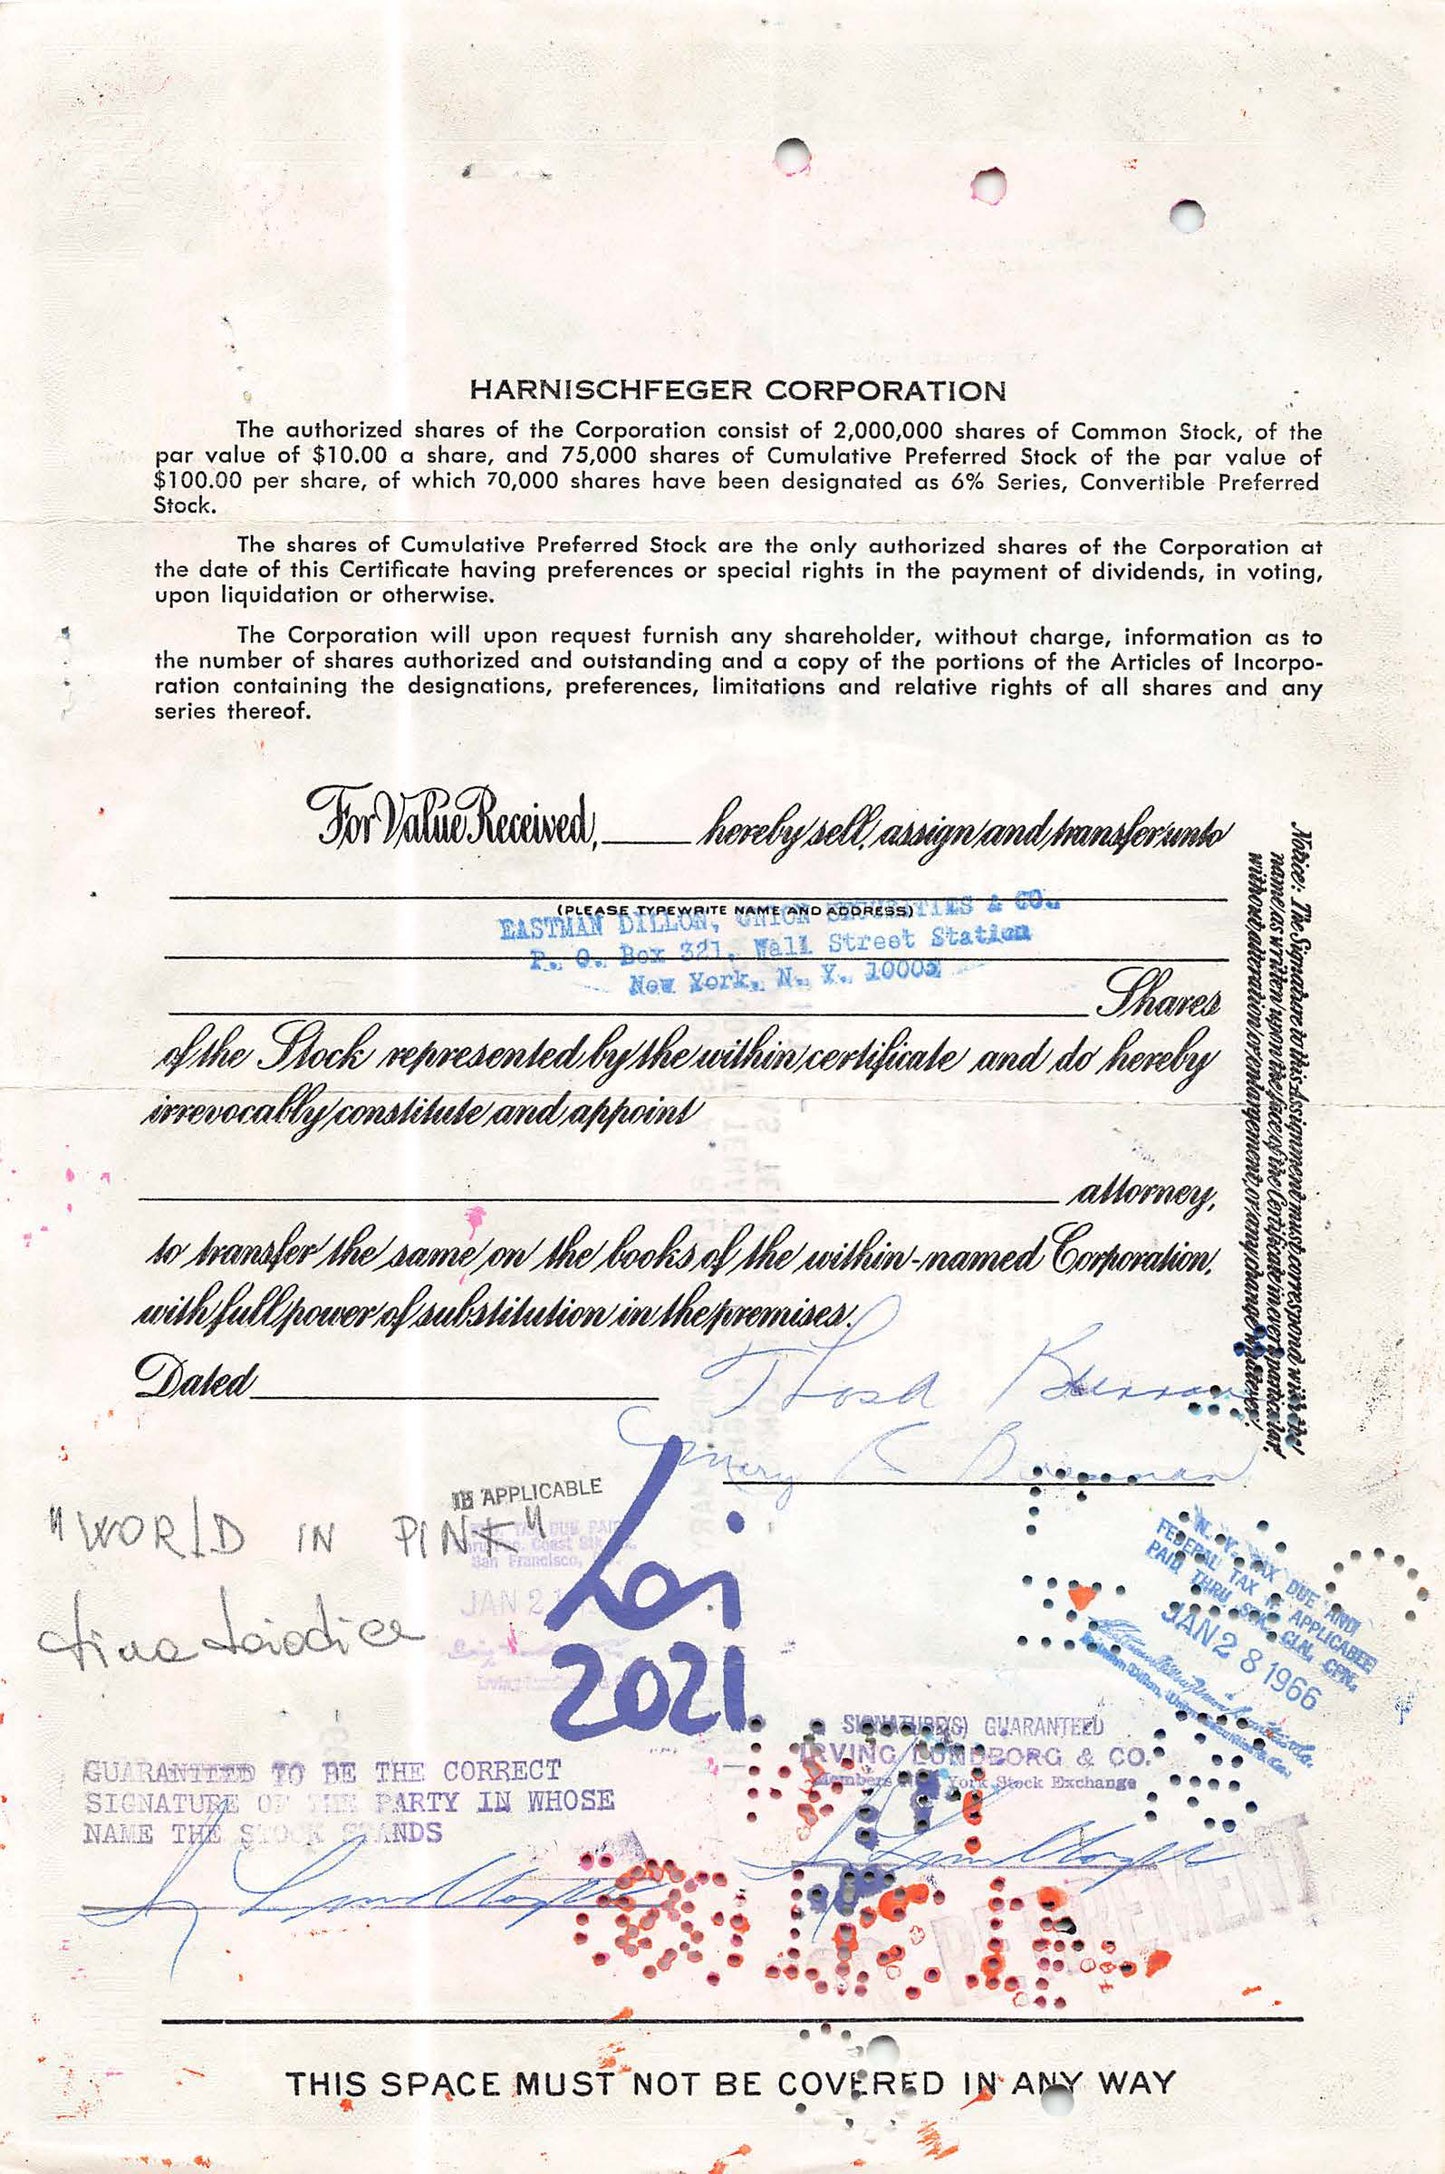 HARNISCHFEGER CORPORATION
The authorized shares of the Corporation consist of 2,000,000 shares of Common Stock, of the
par value of $10.00 a share, and 75,000 shares of Cumulative Preferred Stock of the par value of
$100.00 per share, of which 70,000 shares have been designated as 6% Series, Convertible Preferred
Stock.
The shares of Cumulative Preferred Stock are the only authorized shares of the Corporation at
the date of this Certificate having preferences or special rights in the payment of dividends, in voting,
upon liquidation or otherwise.
The Corporation will upon request furnish any shareholder, without charge, information as to
the number of shares authorized and outstanding and a copy of the portions of the Articles of Incorpo-
ration containing the designations, preferences, limitations and relative rights of all shares and any
series thereof.
For Value Received, hereby sell, assign and transfer unto
(PLEASE TYPEWRITE NAME AND ADDRESS)
EASTMAN DILLON, UNION SECURITIES & CO.
P. O. Box 321, Wall Street Station
New York, N. Y. 10005
Shares
of the Stock represented by the within certificate and do hereby
irrevocably constitute and appoint
attorney,
to transfer the same on the books of the within-named Corporation,
with full power of substitution in the premises.
Dated
Notice: The Signature to this assignment must correspond with the
name as written upon the face of the Certificate in every particular,
without alteration or enlargement, or any change whatever.
Mary
IF APPLICABLE
"WORLD IN PINK"
San Francisco,
JAN 2
Loi
2021
N. Y. TAX DUE AND
FEDERAL TAX IF APPLICABLE
PAID THRU STK. CLR. CPN.
JAN 28 1966
SIGNATURE(S) GUARANTEED
IRVING LUNDBORG & CO.
Members New York Stock Exchange
GUARANTEED TO BE THE CORRECT
SIGNATURE OF THE PARTY IN WHOSE
NAME THE STOCK STANDS
RETIREMENT
THIS SPACE MUST NOT BE COVERED IN ANY WAY